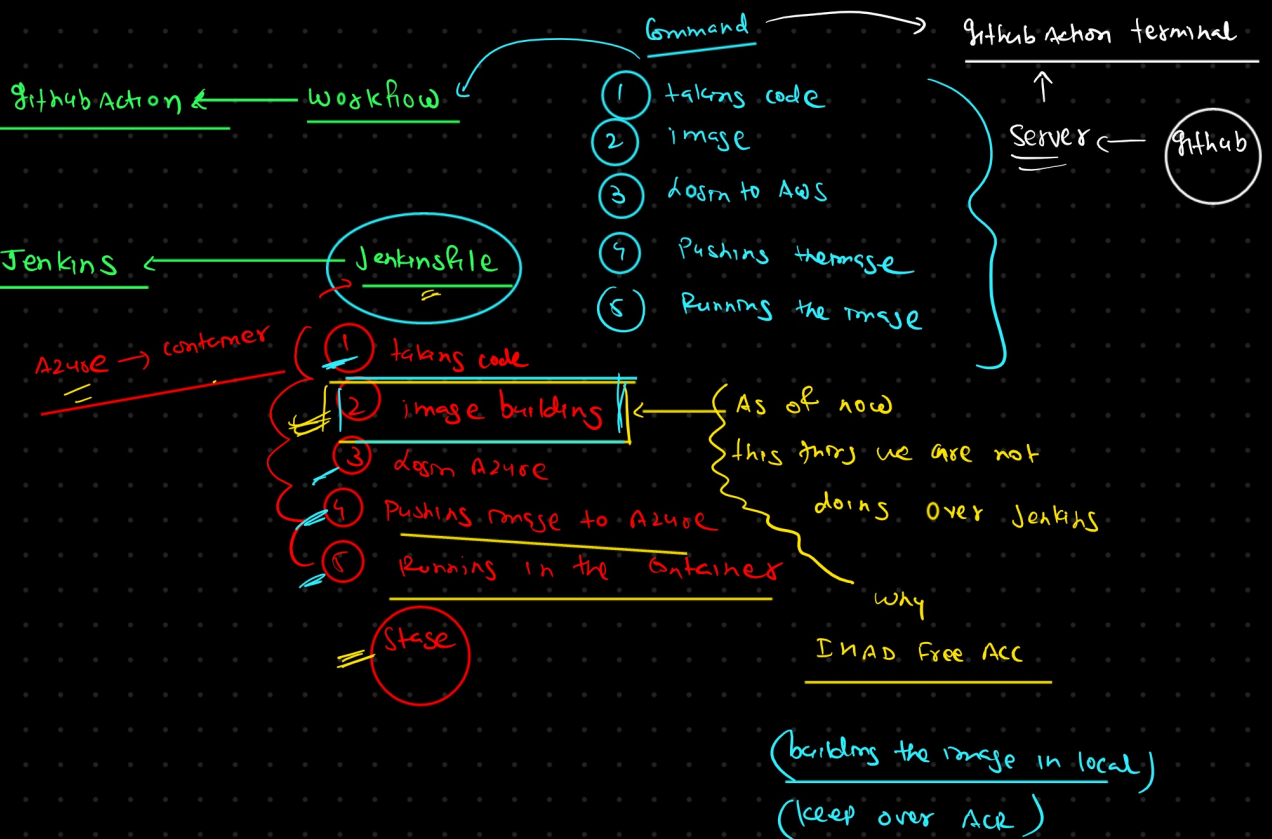 Command
Github Action terminal
Github Action
Workflow
1 taking code
2 image
3 Login to AWS
4 Pushing the image
5 Running the image
Server
Github
Jenkins
Jenkinsfile
Azure → container
1 taking code
2 image building
3 Login Azure
4 Pushing image to Azure
5 Running in the Container
Stage
As of now
this thing we are not
doing over Jenkins
Why
Free Acc
(building the image in local)
(keep over ACR)